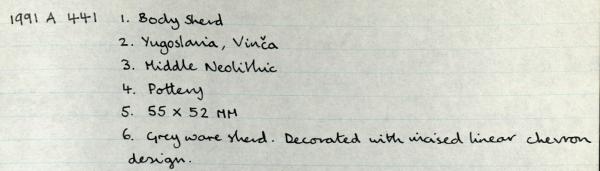 1991 A 441 1. Body Sherd
2. Yugoslavia, Vinča
3. Middle Neolithic
4. Pottery
5. 55 x 52 MM
6. Grey ware sherd. Decorated with incised linear chevron
design.